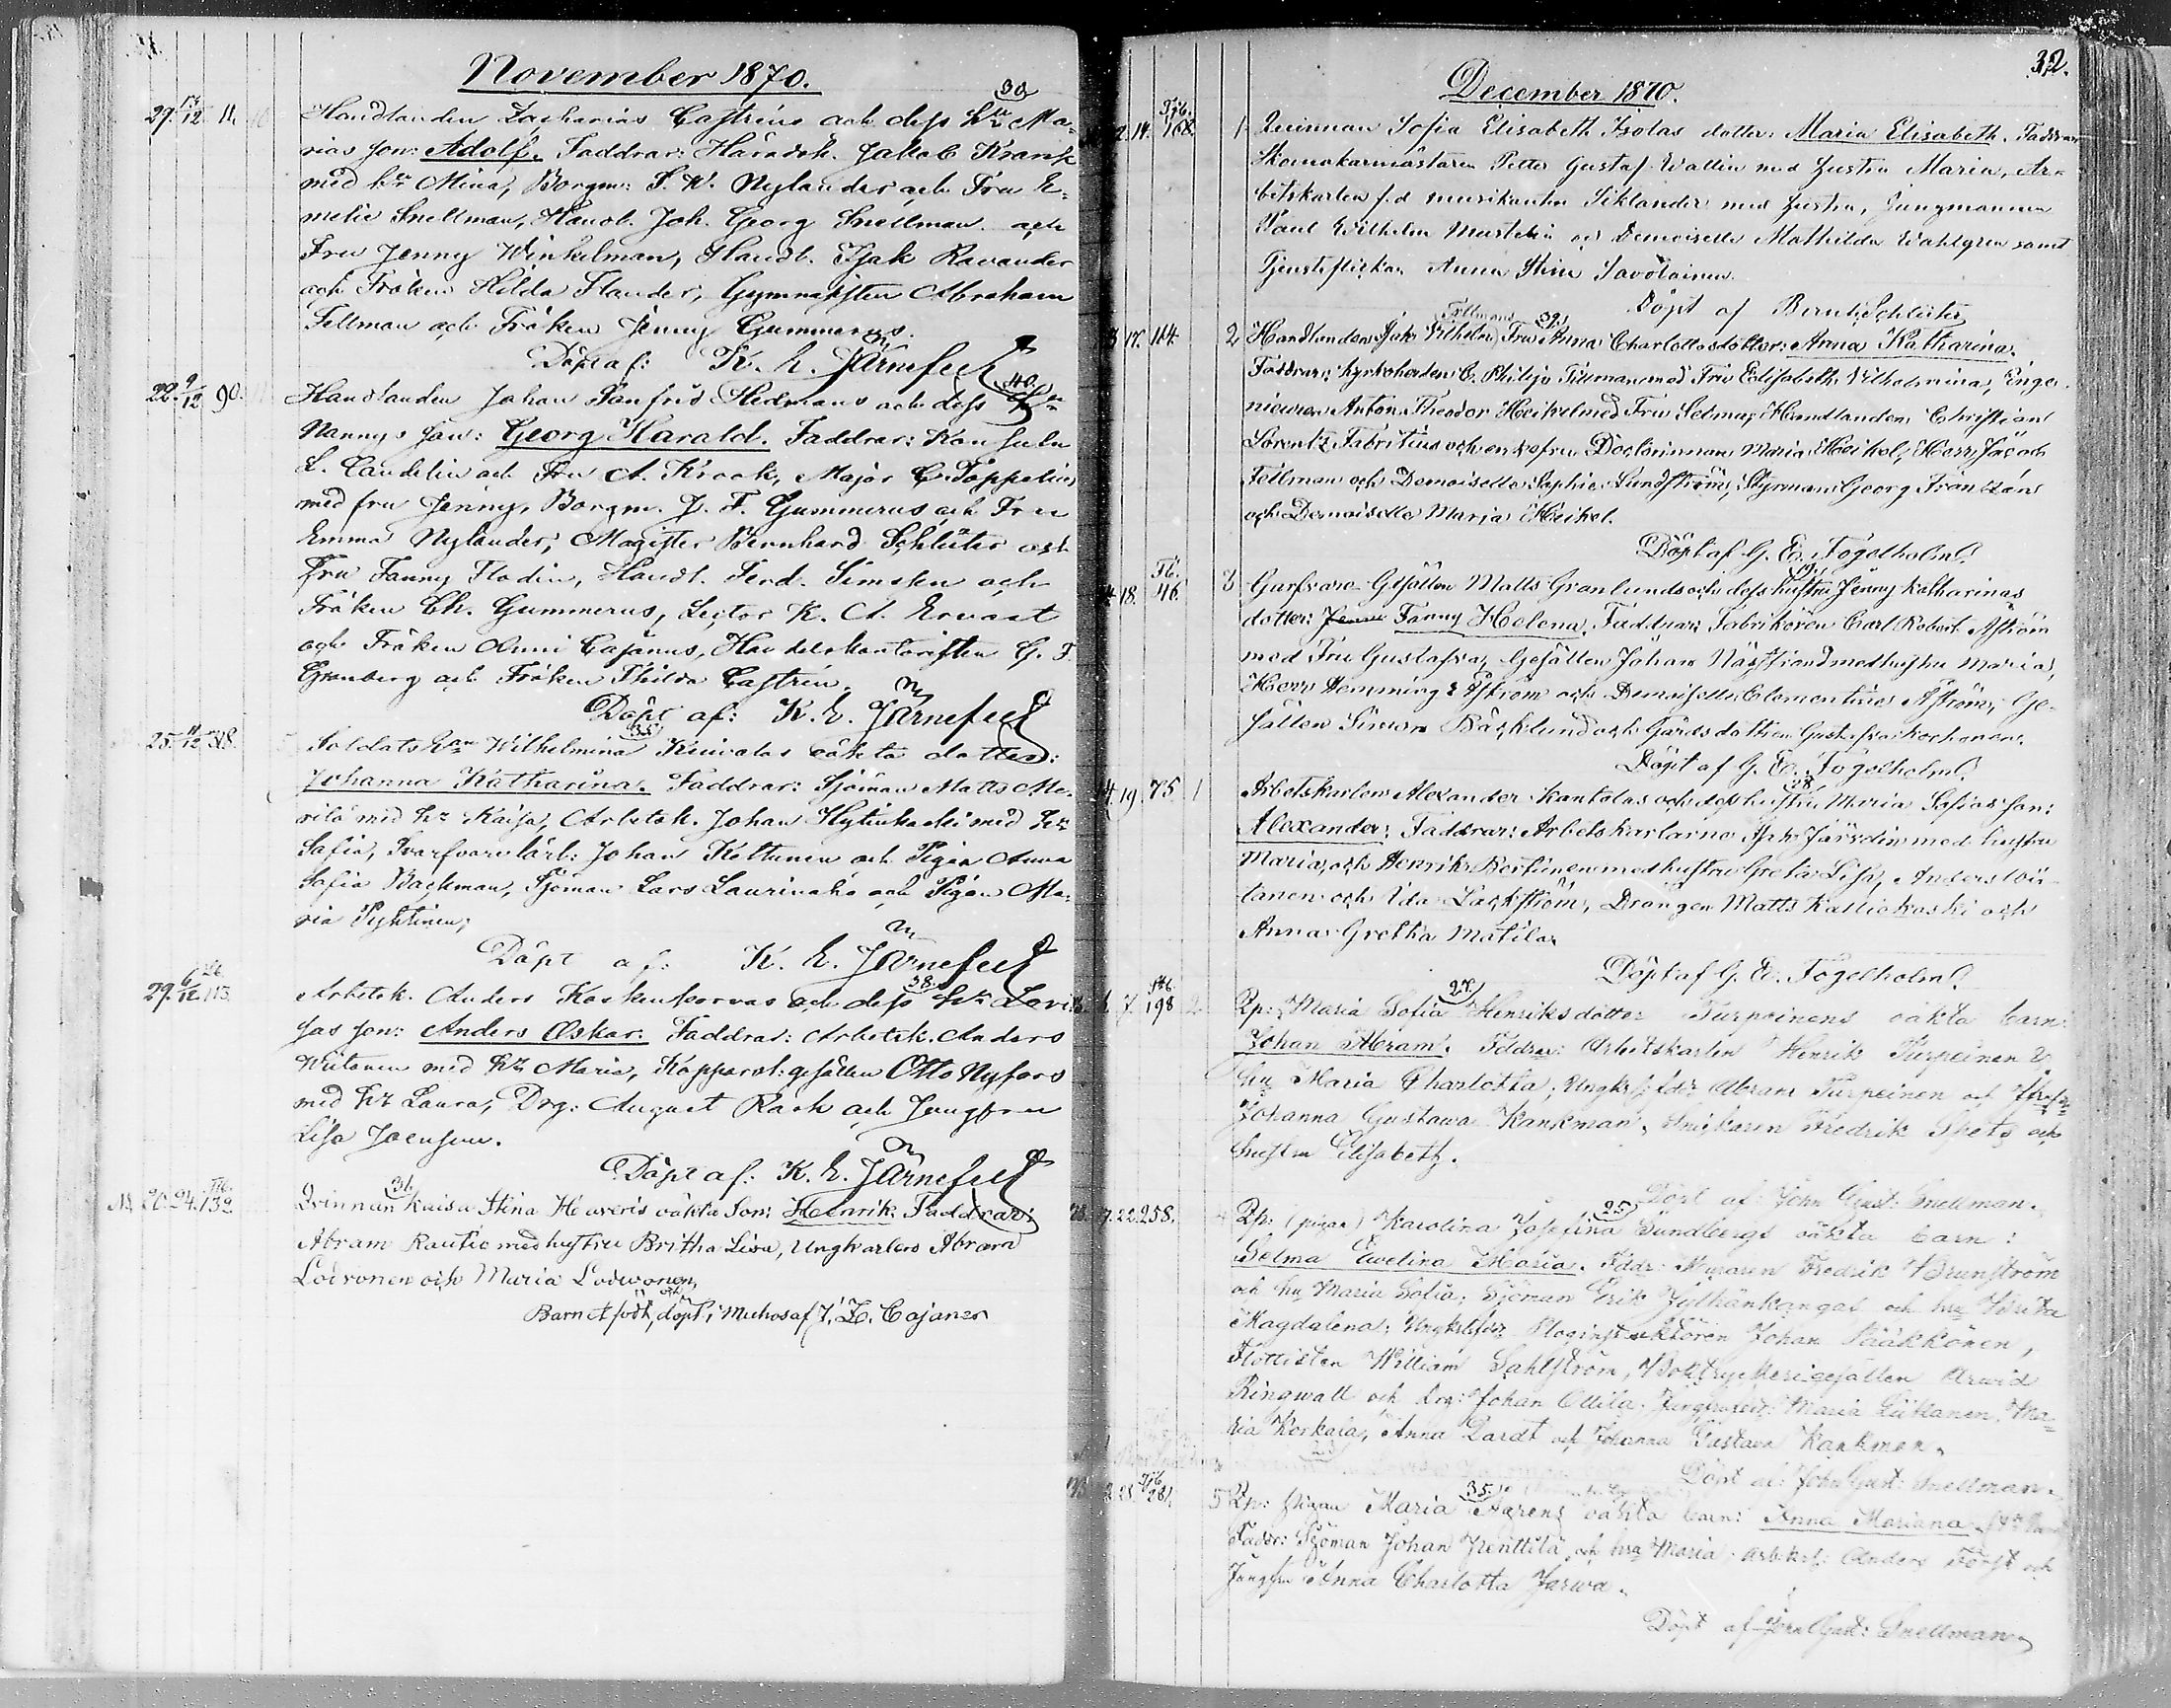 November 1870.
30
29. 13/12 11. Handlanden Zacharias Castréns och dess hu Ma-
rias son: Adolf. Faddrar: Häradsh. Jakob Krank
med hu Mina, Borgm: F. W. Nylander och Fru E-
melie Snellman, Handl. Joh. Georg Snellman och
Fru Jenny Winkelman, Handl. Isak Ravander
och Fröken Hilda Flander, Gymnasisten Abraham
Fellman och Fröken Jenny Gummerus.
Döpt af: K. E. Järnefelt
40.
22. 9/12 90. Handlanden Johan Sanfrid Hedmans och dess hu
Nannys son: Georg Harald. Faddrar: Konsuln
L. Candelin och Fru A. Krook, Major C. Toppelius
med fru Jenny, Borgm. J. F. Gummerus och Fru
Emma Nylander, Magister Bernhard Schlüter och
Fru Fanny Flodin, Handl. Ferd. Simelen och
Fröken Ch. Gummerus, Lector K. A. Ervast
och Fröken Anni Cajanus, Handelskontoristen G. F.
Granberg och Fröken Thilda Castrén.
Döpt af: K. E. Järnefelt
35.
25. 11/12 318. Soldats hu Wilhelmina Kuivalas oäkta dotter:
Johanna Katharina. Faddrar: Sjöman Matts Me-
rilä med hu Kaisa, Arbetsk. Johan Hytinkoski med hu
Safia, Svarfvarelärl: Johan Keltunen och Pigan Anna
Safia Backman, Sjöman Lars Laurinaho och Pigan Ma-
ria Pyhtinen,
Döpt af: K. E. Järnefelt
38.
29. 6/12 Tb. 113. Arbetsk. Anders Koskenkorvas och dess hu Lovi-
sas son: Anders Oskar. Faddrar: Arbetsk. Anders
Wiitanen med hu Maria, Kopparsl: gesällen Otto Nyfors
med hu Laura, Drg: August Rask och Jungfru
Lisa Joensuu.
Döpt af: K. E. Järnefelt
31.
20. 24. Tb. 132. Qvinnan Kaisa Stina Heaveris oäkta Son: Henrik. Faddrar:
Abram Rautio med hustru Britha Lisa, Ungkarlen Abram
Lodvonen och Maria Lodwonen,
Barnet född, och döpt i Muhos af J. Z. Cajaner
32.
December 1870.
2. 14. Tjb. 168. 1 Qvinnan Sofia Elisabeth Isolas dotter: Maria Elisabeth. Faddrar
Skomakarmästaren Petter Gustaf Wallin med hustru Maria, Ar-
betskarlen f.d. musikanten Siklander med hustru, Jungmannen
Paul Wilhelm Martelin och Demoiselle Mathilda Wahlgren samt
Tjensteflickan Anna Stina Savolainen.
Döpt af Bernh. Schlüter
Fellmans 32.
3. 17. 114. 2 Handlanden Isak Vilhelm, Fru Anna Charlottas dotter: Anna Katharina.
Faddrar: Kyrkoherden C. Philip Tillman med Fru Elisabeth Vilhelmina, Inge-
nieuren Anton Theodor Heikel med Fru Selma, Handlanden Christian
Lorentz Fabritius och enkefru Doctorinnan Maria Heikel, Herr Jacob
Fellman och Demoiselle Sophia Sundström, Styrman Georg Franzén
och Demoiselle Maria Heikel.
Döpt af G. Ed. Fogelholm.
18. Tb. 46. 3 Garfvare Gesällen Matts Granlunds och dess hustru Jenny Katharinas
dotter: Fanny Helena. Faddrar: Fabrikören Carl Robert Åström
med Fru Gustafva, Gesällen Johan Nässtrand med hustru Maria,
Herr Hemming Åström och Demoiselle Clementine Åström, Ge-
sällen Simon Bäcklund och Gårdsdottren Gustafva Korhonen.
Döpt af G. Ed. Fogelholm.
28.
4. 19. 75. 1 Arbetskarlen Alexander Kantolas och dess hustru Maria Sofias son:
Alexander. Faddrar: Arbetskarlarne Isak Järvelin med hustru
Maria, och Henrik Karhinen med hustru Greta Lisa, Anders Wii-
tanen och Ida Lackström, Drängen Matts Kalliokoski och
Anna Gretha Matila.
Döpt af G. Ed. Fogelholm.
27.
6. 7. 198 2 Qp: Maria Sofia Henriksdotter Turpeinens oäkta barn:
Johan Abram. Fddrar: Arbetskarlen Henrik Turpeinen &
hu Maria Charlotta; Ungk: Abram Turpeinen och
Johanna Gustawa Kankman, Snickaren Fredrik Spets och
hustru Elisabeth.
Döpt af: John Gust: Snellman.
25.
9. 22. 258. Qp: (pigan) Karolina Josefina Sundbergs oäkta barn:
Selma Ewelina Maria. Fddr: Muraren Fredrik Brunström
och hu Maria Sofia, Sjöman Erik Jylhänkangas och hu Brita
Magdalena; Johan Pääkkönen,
Flottisten William Sahlström, Boktryckerigesällen Arwid
Ringwall och drg: Johan Ollila. Maria Liitanen, Ma-
ria Korkala, Anna Qardt och Johanna Gustava Kankman.
Döpt af: John Gust: Snellman.
35.
28. Tjb 281. 5 Qp: Pigan Maria Harens oäkta barn: Anna Mariana
Faddr: Sjöman Johan Penttilä och hu Maria. Arb.krl: Anders Forst och
Jungfru Anna Charlotta Jarwa.
Döpt af John Gust: Snellman